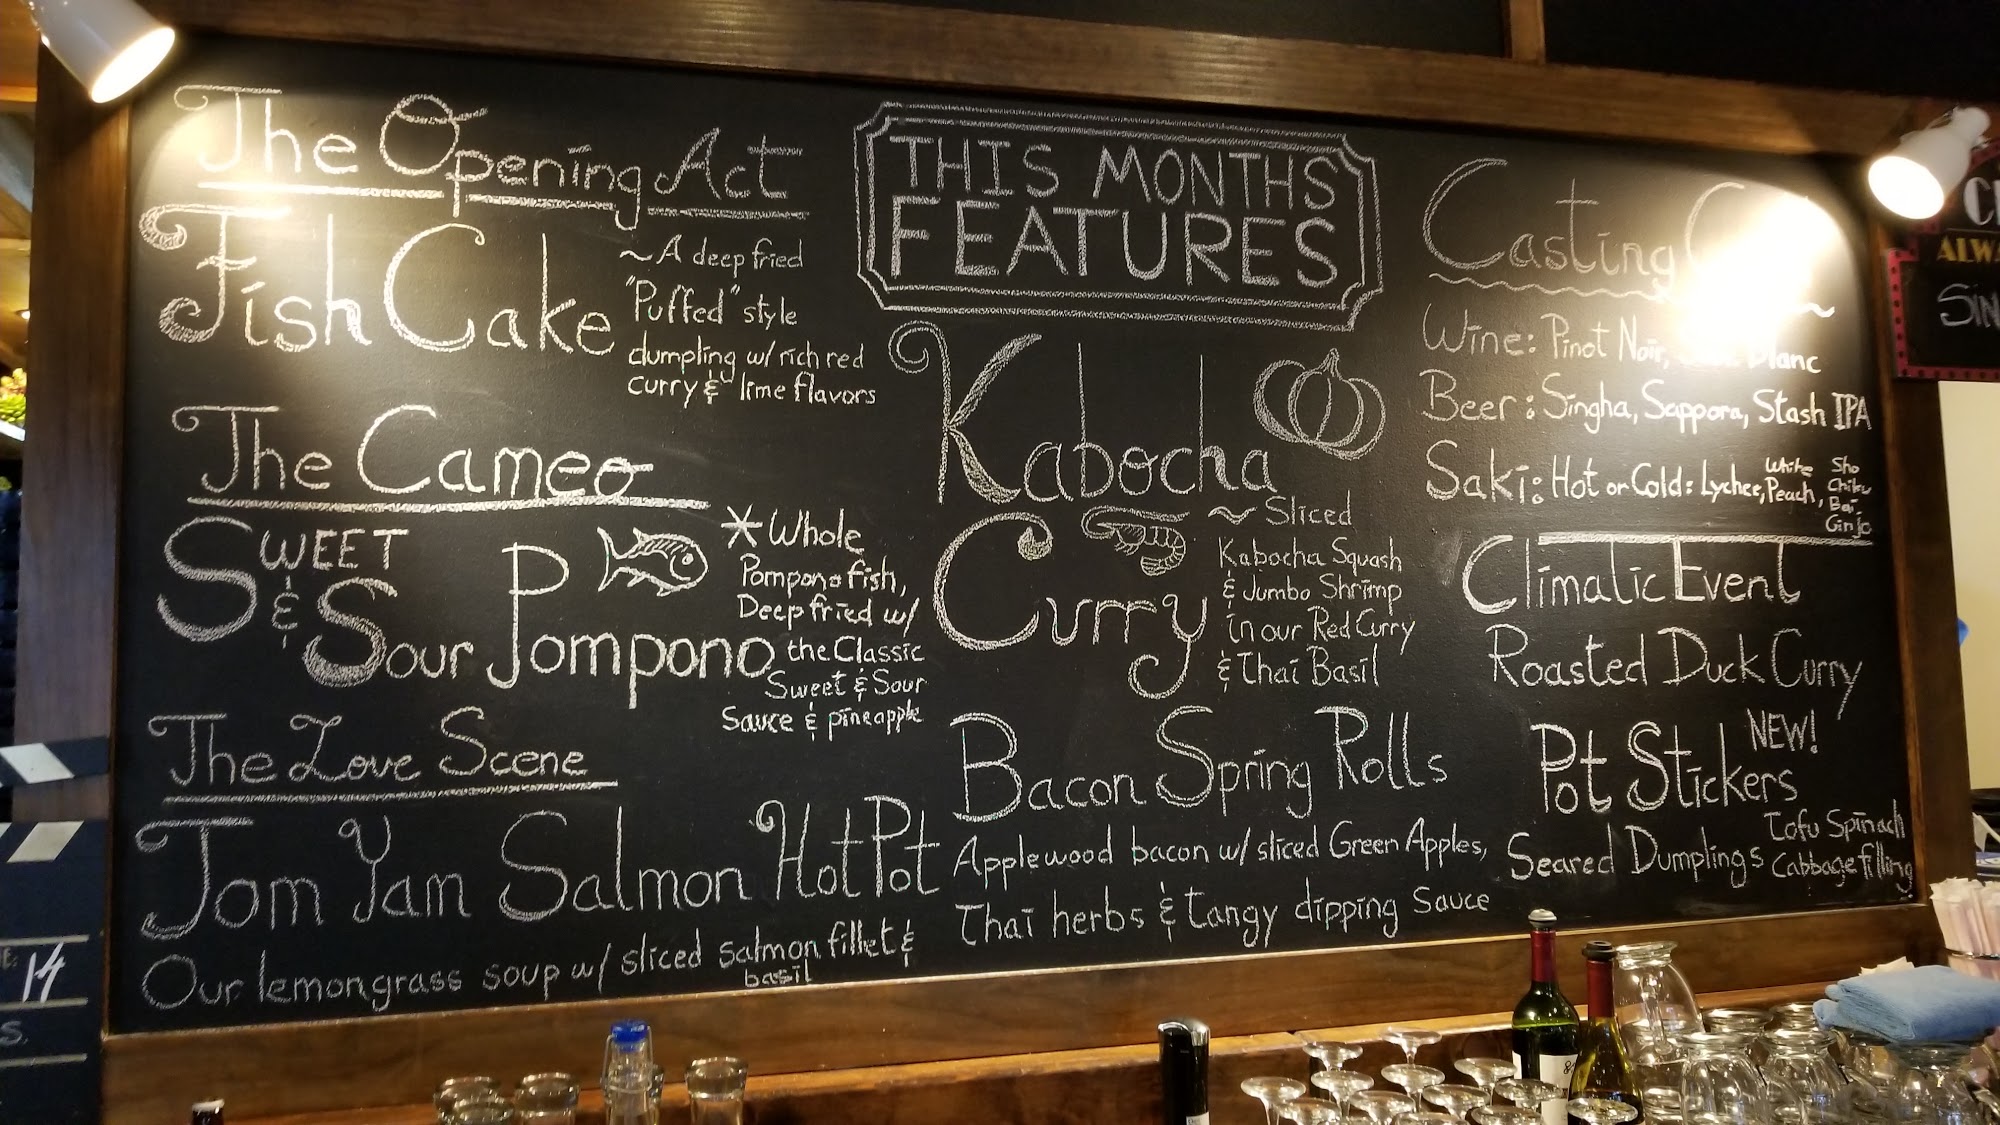 The Opening Act
Fish Cake
~A deep fried
"Puffed" style
dumpling w/ rich red
curry & lime flavors
The Cameo
Sweet
& Sour Pompono
*Whole
Pompono fish,
Deep fried w/
the Classic
Sweet & Sour
Sauce & pineapple
The Love Scene
Tom Yam Salmon Hot Pot
Our lemongrass soup w/ sliced salmon fillet &
basil
THIS MONTHS
FEATURES
Kabocha
Curry
~Sliced
Kabocha Squash
& Jumbo Shrimp
in our Red Curry
& Thai Basil
Bacon Spring Rolls
Applewood bacon w/ sliced Green Apples,
Thai herbs & tangy dipping Sauce
Casting
Wine: Pinot Noir, Blanc
Beer: Singha, Sappora, Stash IPA
Saki: Hot or Cold: Lychee, White Peach, Sho Chiku Bai Ginjo
Climatic Event
Roasted Duck Curry
NEW!
Pot Stickers
Seared Dumplings
Tofu Spinach
Cabbage filling
ALWA
SIN
14
S.